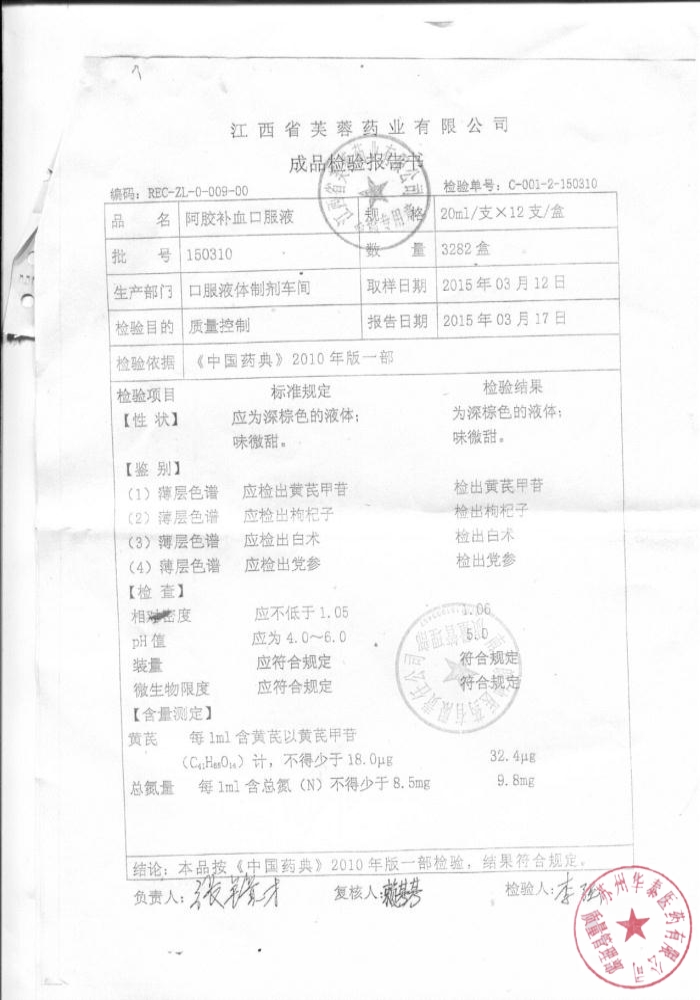 江西省芙蓉药业有限公司
成品检验报告书
编码：REC-ZL-0-009-00 检验单号：C-001-2-150310
品 名 阿胶补血口服液 规 格 20ml/支×12支/盒
批 号 150310 数 量 3282盒
生产部门 口服液体制剂车间 取样日期 2015年03月12日
检验目的 质量控制 报告日期 2015年03月17日
检验依据 《中国药典》2010年版一部
检验项目 标准规定 检验结果
【性 状】 应为深棕色的液体； 为深棕色的液体；
味微甜。 味微甜。
【鉴 别】
（1）薄层色谱 应检出黄芪甲苷 检出黄芪甲苷
（2）薄层色谱 应检出枸杞子 检出枸杞子
（3）薄层色谱 应检出白术 检出白术
（4）薄层色谱 应检出党参 检出党参
【检 查】
相对密度 应不低于1.05 1.06
pH值 应为4.0～6.0 5.0
装量 应符合规定 符合规定
微生物限度 应符合规定 符合规定
【含量测定】
黄芪 每1ml含黄芪以黄芪甲苷
（C₄₁H₆₈O₁₄）计，不得少于18.0μg 32.4μg
总氮量 每1ml含总氮（N）不得少于8.5mg 9.8mg
结论：本品按《中国药典》2010年版一部检验，结果符合规定。
负责人： 复核人： 检验人：李
苏州华泰医药有限公司
质量管理部